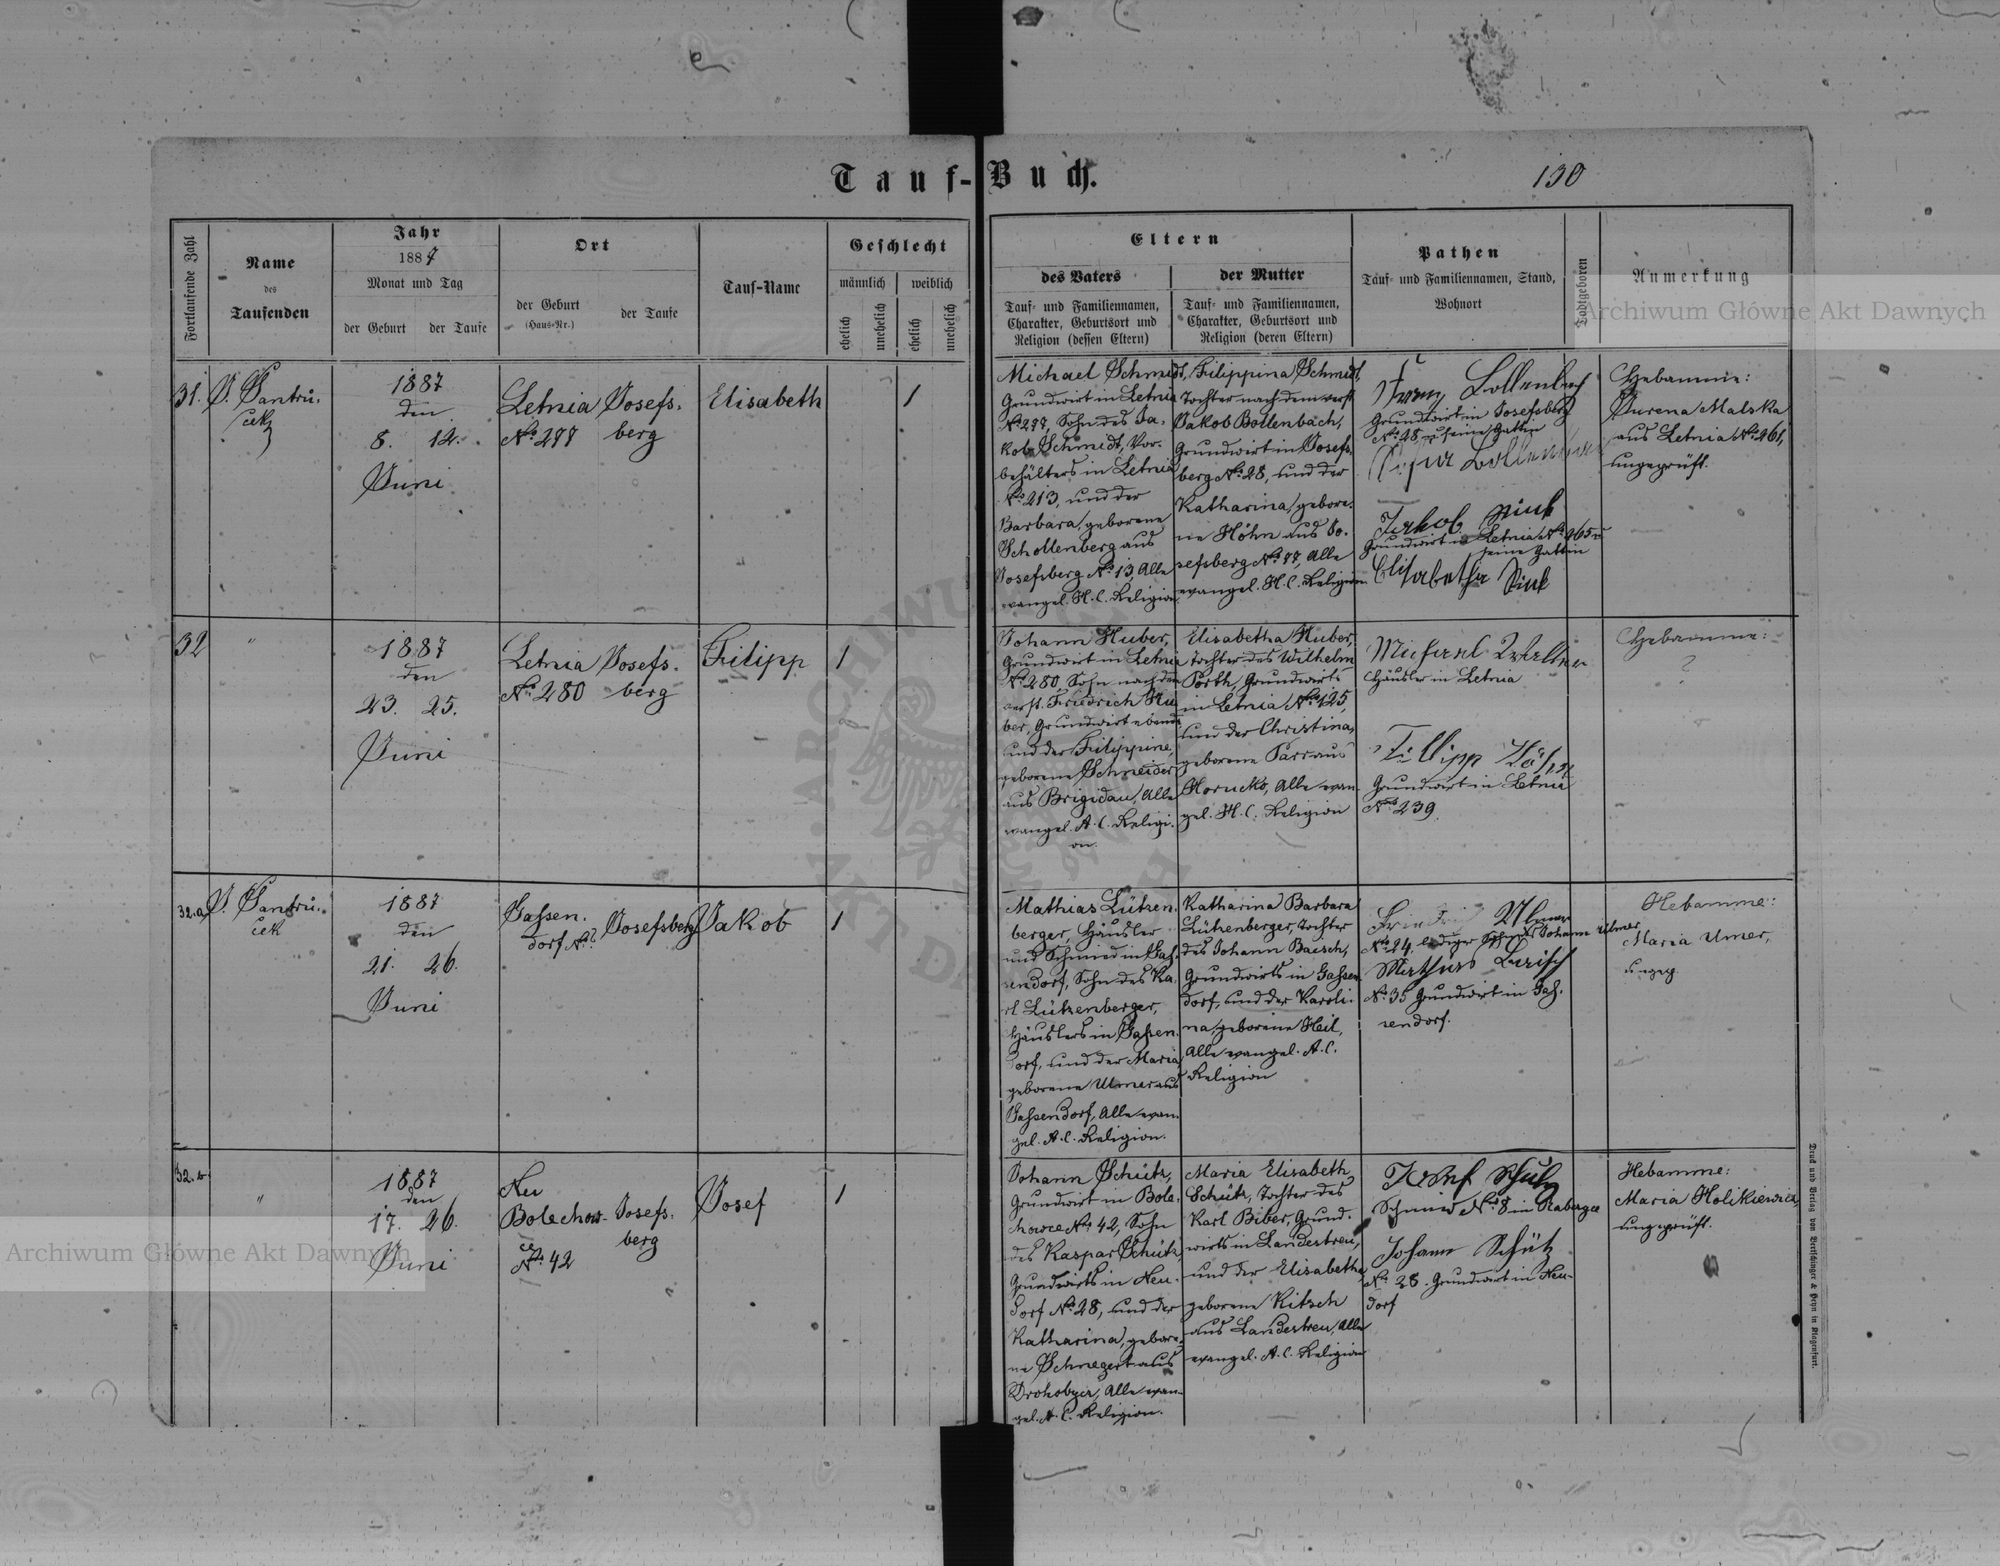 Tauf-Buch.
130
Fortlaufende Zahl
Name
des
Taufenden
Jahr
1887
Monat und Tag
der Geburt
der Taufe
Ort
der Geburt
(Haus-Nr.)
der Taufe
Tauf-Name
Geschlecht
männlich
weiblich
ehelich
unehelich
ehelich
unehelich
Eltern
des Vaters
Tauf- und Familiennamen,
Charakter, Geburtsort und
Religion (dessen Eltern)
der Mutter
Tauf- und Familiennamen,
Charakter, Geburtsort und
Religion (deren Eltern)
Pathen
Tauf- und Familiennamen, Stand,
Wohnort
Todtgeboren
Anmerkung
Archiwum Główne Akt Dawnych
31.
J. Jantru-
1887
den
8. 12.
Juni
Letnia
No 277
Josefs-
berg
Elisabeth
1
Michael Schmidt,
Grundwirt in Letnia
No 277, Sohn des Ja-
kob Schmidt, Vor-
behälters in Letnia
No 213, und der
Barbara, geborene
Schollenberg aus
Josefsberg No 13, Alle
evangel. H. C. Religion
Filippina Schmidt,
Tochter nach dem verst.
Jakob Bollenbach,
Grundwirt in Josefs-
berg No 28, und der
Katharina, gebore-
ne Höhn aus Jo-
sefsberg No 77, Alle
evangel. H. C. Religion
Bollenbach
Grundwirt in Josefsberg
No 28, u. seine Gattin
Bollenbach
Jakob Rink
Grundwirt in Letnia No 265 u
seine Gattin
Elisabetha Rink
Hebamme:
Jurena Malska
aus Letnia No 261,
ungeprüft.
32
"
1887
den
23. 25.
Juni
Letnia
No 280
Josefs-
berg
Filipp
1
Johann Huber,
Grundwirt in Letnia
No 280, Sohn nach dem
verst. Fridrich Hu-
ber, Grundwirt ebenda
und der Filippine,
geborene Schneider
aus Brigidau, Alle
evangel. A. C. Religi-
on.
Elisabetha Huber,
Tochter des Wilhelm
Porth, Grundwirt
in Letnia No 125,
und der Christina,
geborene Parr aus
Horucko, Alle evan-
gel. H. C. Religion
Michael Walter
Häusler in Letnia
Fillipp Höhn
Grundwirt in Letnia
No 239.
Hebamme:
?
32.a
J. Jantru-
cek
1887
den
21. 26.
Juni
Gassen-
dorf No ?
Josefsberg
Jakob
1
Mathias Lützen-
berger, Häusler
und Schmied in Gas-
sendorf, Sohn des Ka-
rl Lützenberger,
Häuslers in Gassen-
dorf, und der Maria,
geborene Ulmer aus
Gassendorf, Alle evan-
gel. A. C. Religion.
Katharina Barbara
Lützenberger, Tochter
des Johann Baisch,
Grundwirts in Gassen-
dorf, und der Karoli-
na, geborene Heil,
Alle evangel. A. C.
Religion
Ulmer
No 24, lediger Sohn des Johann Ulmer
Mathias Baisch
No 35 Grundwirt in Gas-
sendorf.
Hebamme:
Maria Ulmer,
ungep.
32.b
"
1887
den
17. 26.
Juni
Neu
Bolechow-
ce
No 42
Josefs-
berg
Josef
1
Johann Schütz,
Grundwirt in Bole-
chowce No 42, Sohn
des Kaspar Schütz,
Grundwirts in Neu-
dorf No 28, und der
Katharina, gebore-
ne Schnegert aus
Drohobycz, Alle evan-
gel. A. C. Religion.
Maria Elisabeth
Schütz, Tochter des
Karl Biber, Grund-
wirts in Landestreu,
und der Elisabetha
geborene Kitsch
aus Landestreu, Alle
evangel. A. C. Religion
Josef Schütz
Schmied No 8 in
Johann Schütz
No 28. Grundwirt in Neu-
dorf
Hebamme:
Maria Holikiewicz,
ungeprüft.
Archiwum Główne Akt Dawnych
Druck und Verlag von Bertschinger & Heyn in Klagenfurt.